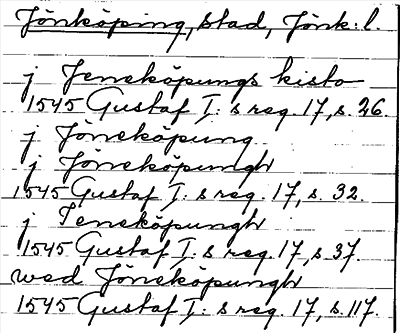 Jönköping, stad, Jönk: l.
j Jeneköpungs kisto
1545 Gustaf I: s reg. 17, s. 26.
j Jöneköpung
j Jöneköpungh
1545 Gustaf I: s reg. 17, s. 32.
j Jeneköpungh
1545 Gustaf I: s reg. 17, s. 37.
wed Jöneköpungh
1545 Gustaf I: s reg. 17, s. 117.